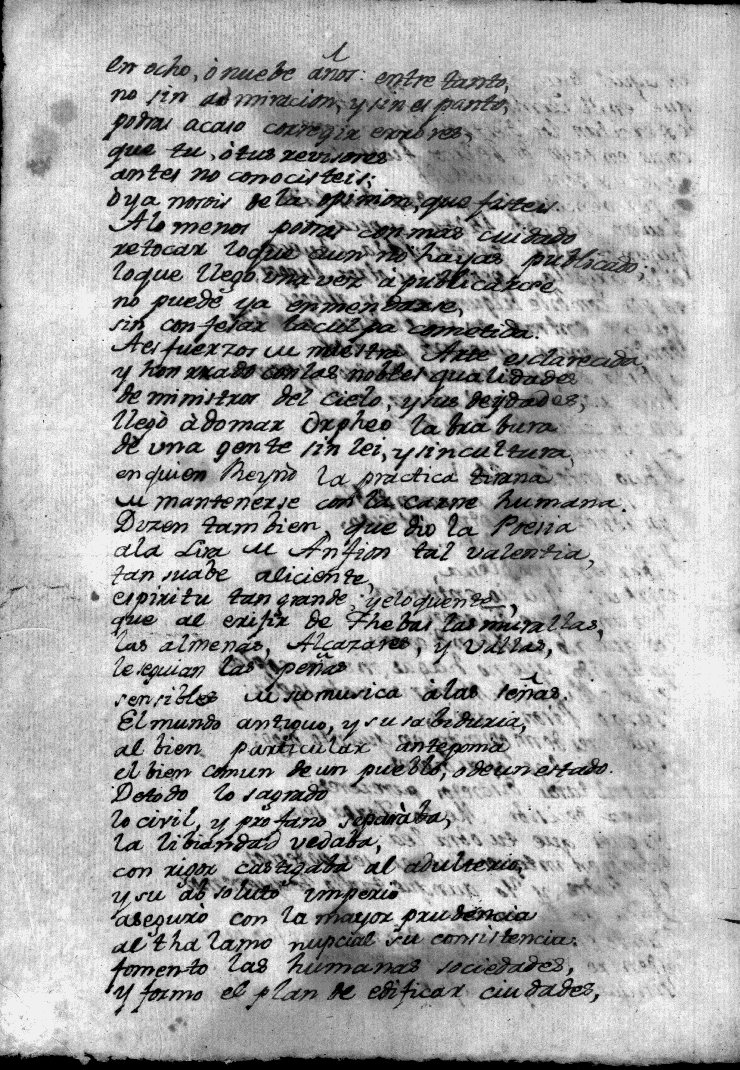 en ocho, ò nuebe años: entre tanto,
no sin admiracion, y sin espanto,
podras acaso corregir errores,
que tu, ò tus revisores
antes no conocisteis;
ò ya no sois de la opinion, que fisteis.
A lo menos podras con mas cuidado
retocar lo que aun no hayas publicado;
lo que llegò una vez à publicarse
no puede ya enmendarse,
sin confesar la culpa cometida.
A esfuerzos de nuestra Arte esclarecida,
y honrrado con las nobles qualidades
de ministro del cielo, y sus deydades,
llegò à domar Orpheo la brabura
de una gente sin lei, y sin cultura,
en quien Reynò la practica tirana
de mantenerse con la carne humana.
Dizen tambien, que dio la Poesia
a la Lira de Anfion tal valentia,
tan suabe aliciente,
espiritu tan grande, y eloquente,
que al erixir de Thebas las murallas,
las almenas, Alcazares, y Vallas,
le seguian las peñas
sensibles de su musica à las señas.
El mundo antiguo, y su sabiduria,
al bien particular anteponia
el bien comun de un pueblo, o de un estado.
De todo lo sagrado
lo civil, y profano separàba,
la libiandad vedaba,
con rigor castigaba al adulterio,
y su absoluto imperio
asegurò con la mayor prudencia
al thalamo nupcial su consistencia.
fomento las humanas sociedades,
y formo el plan de edificar ciudades,